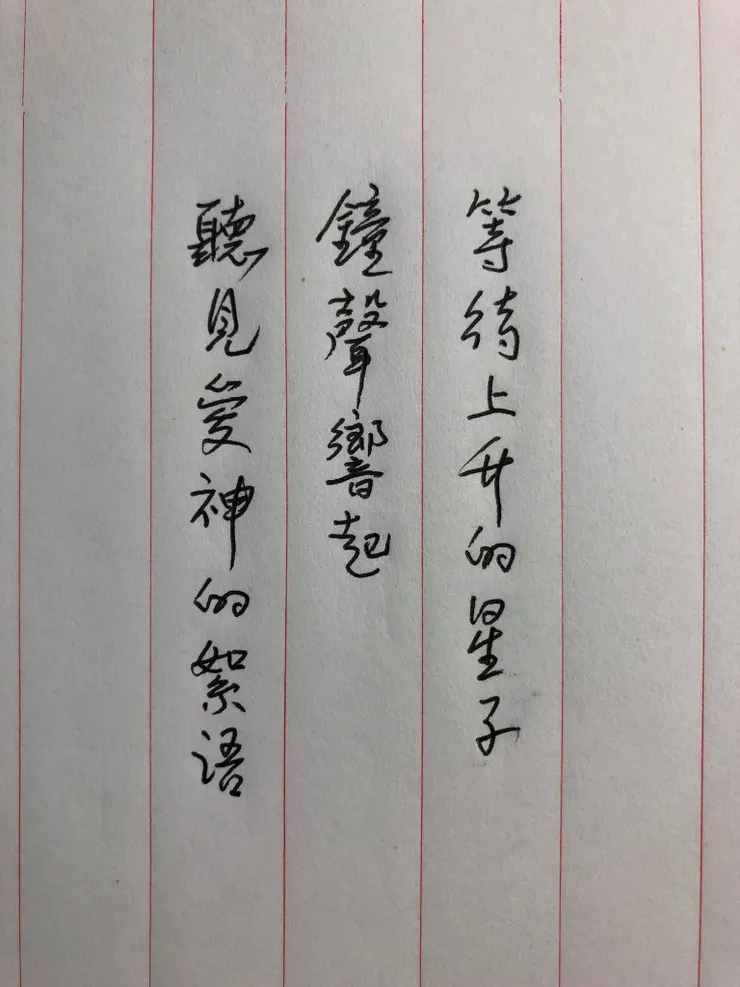 等待上升的星子
鐘聲響起
聽見愛神的絮語